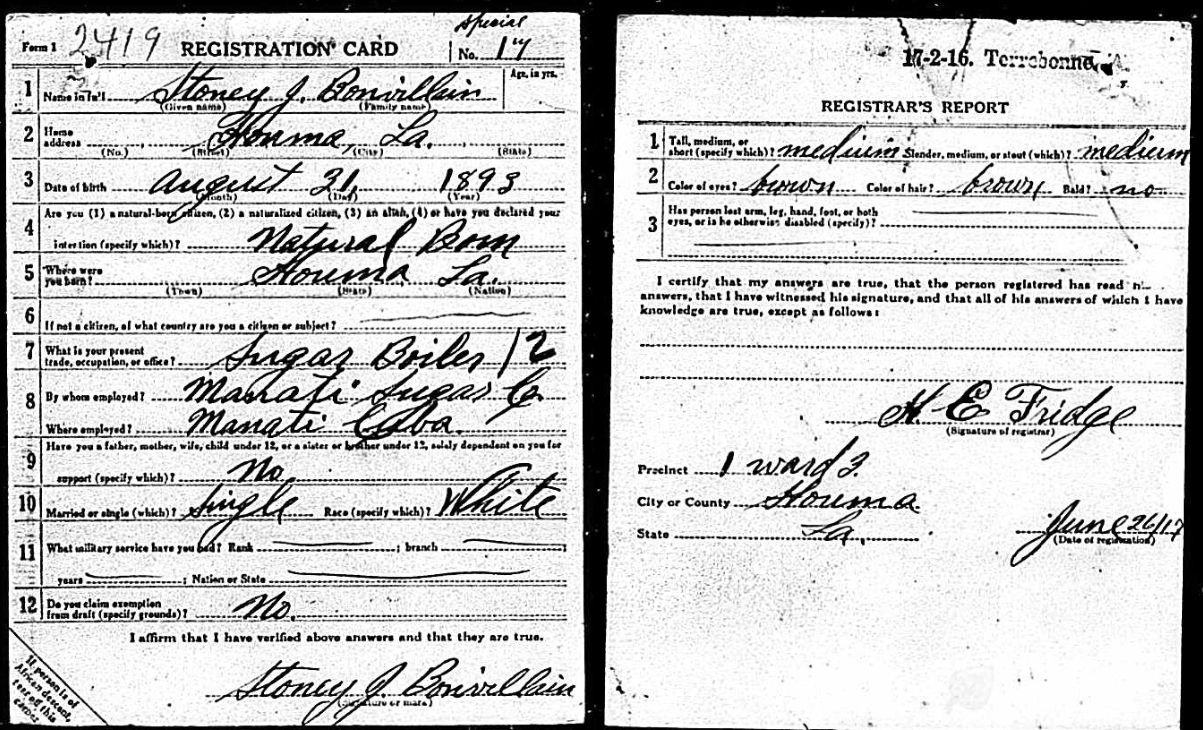 Special
Form 1 2419 REGISTRATION CARD No. 17
Age, in yrs.
1 Name in full Stoney J. Bonvillain
(Given name) (Family name)
2 Home address Houma, La.
(No.) (Street) (City) (State)
3 Date of birth August 31, 1893
(Month) (Day) (Year)
4 Are you (1) a natural-born citizen, (2) a naturalized citizen, (3) an alien, (4) or have you declared your
intention (specify which)? Natural Born
5 Where were you born? Houma La.
(Town) (State) (Nation)
6 If not a citizen, of what country are you a citizen or subject?
7 What is your present trade, occupation, or office? Sugar Boiler 12
8 By whom employed? Manati Sugar Co
Where employed? Manati Cuba.
9 Have you a father, mother, wife, child under 12, or a sister or brother under 12, solely dependent on you for
support (specify which)? No.
10 Married or single (which)? Single Race (specify which)? White
11 What military service have you had? Rank ; branch ;
years ; Nation or State
12 Do you claim exemption from draft (specify grounds)? No.
I affirm that I have verified above answers and that they are true.
Stoney J. Bonvillain
(Signature or mark)
If person is of
African descent,
tear off this
corner
17-2-16. Terrebonne
REGISTRAR'S REPORT
1 Tall, medium, or short (specify which)? medium Slender, medium, or stout (which)? medium
2 Color of eyes? brown Color of hair? brown Bald? no
3 Has person lost arm, leg, hand, foot, or both
eyes, or is he otherwise disabled (specify)?
I certify that my answers are true, that the person registered has read
answers, that I have witnessed his signature, and that all of his answers of which I have
knowledge are true, except as follows:
H. E. Fridge
(Signature of registrar)
Precinct 1 ward 3.
City or County Houma.
State La. June 26/17
(Date of registration)